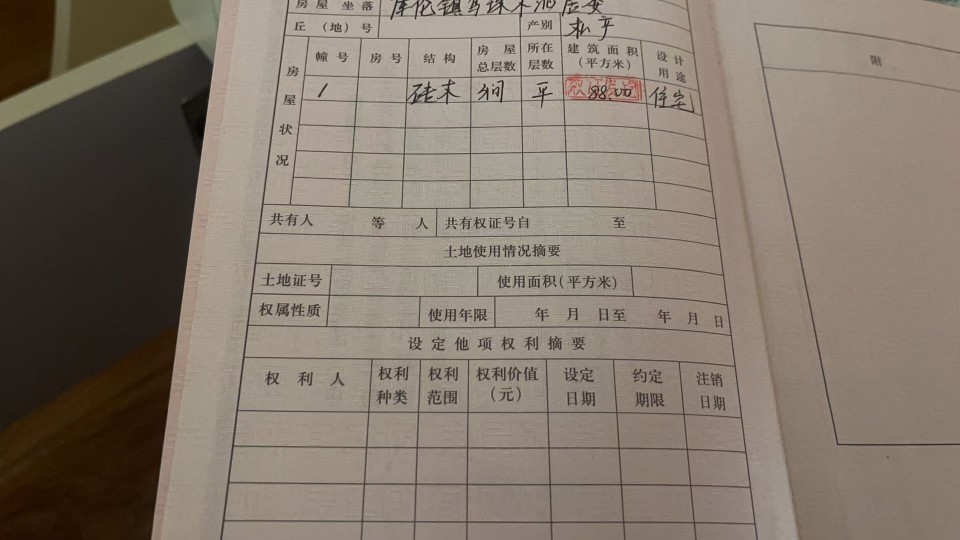 房屋坐落 库伦镇
丘(地)号 产别 私产
房屋状况
幢号 房号 结构 房屋总层数 所在层数 建筑面积(平方米) 设计用途
1 砖木 平 88.00 住宅
共有人 等 人 共有权证号自 至
土地使用情况摘要
土地证号 使用面积(平方米)
权属性质 使用年限 年 月 日至 年 月 日
设定他项权利摘要
权利人 权利种类 权利范围 权利价值(元) 设定日期 约定期限 注销日期
附